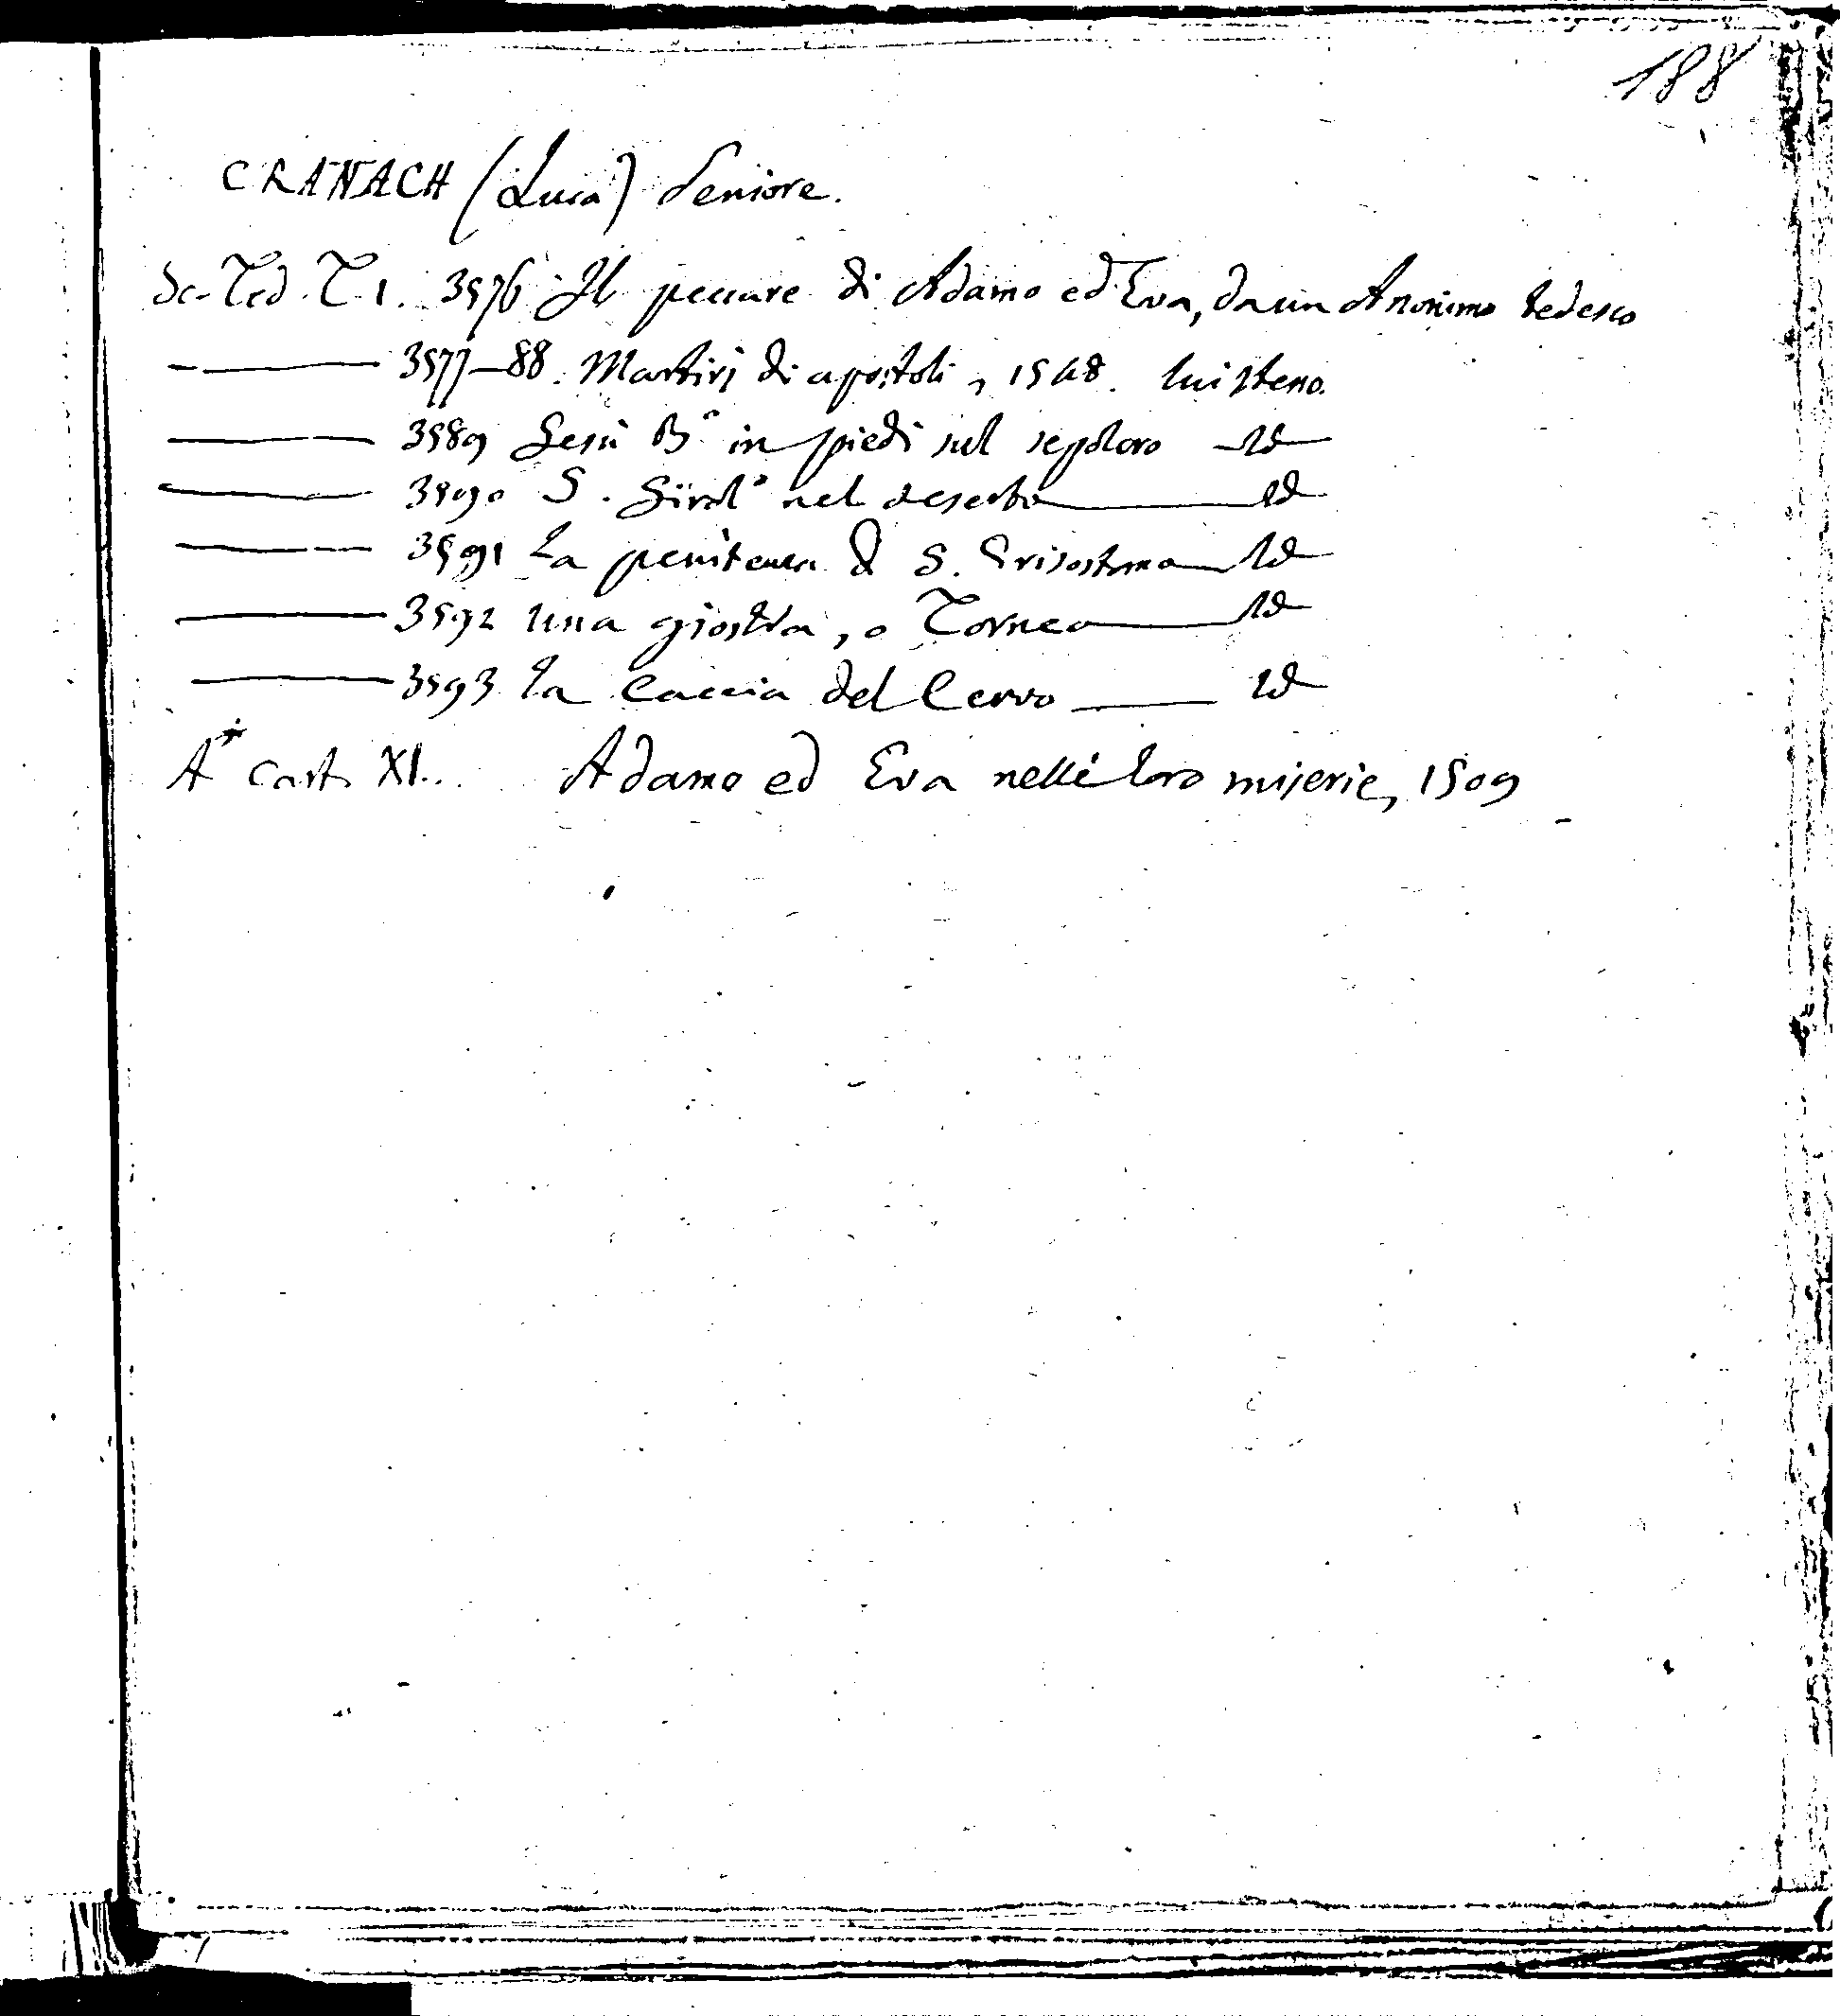 188
CRANACH (Luca) Seniore.
Sc. Ted. T. 1. 3576 Il peccare di Adamo ed Eva, da un Anonimo tedesco
3577-88. Martirj di apostoli, 1548. lui steno.
3589 Gesù B.º in piedi sul sepolcro Id
3590 S. Girol.º nel deserto Id
3591 La penitenza di S. Grisostomo Id
3592 una giostra, o Torneo Id
3593 La Caccia del Cervo Id
A* Cart. XI.. Adamo ed Eva nelle loro miserie, 1509